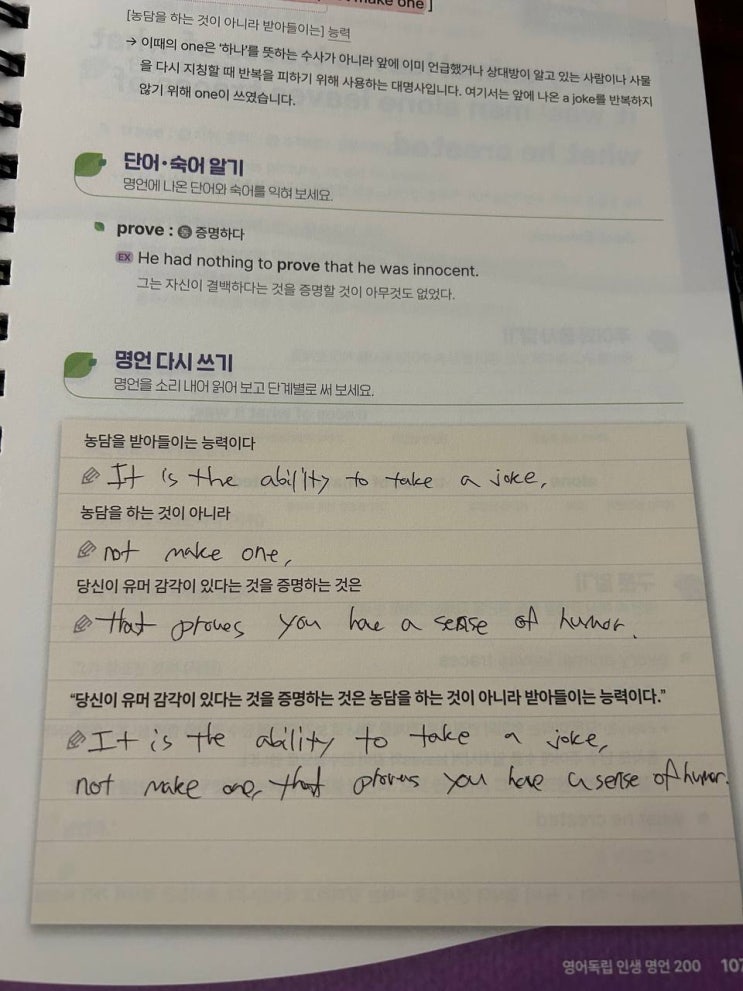 make one ]
[농담을 하는 것이 아니라 받아들이는] 능력
→ 이때의 one은 '하나'를 뜻하는 수사가 아니라 앞에 이미 언급했거나 상대방이 알고 있는 사람이나 사물
을 다시 지칭할 때 반복을 피하기 위해 사용하는 대명사입니다. 여기서는 앞에 나온 a joke를 반복하지
않기 위해 one이 쓰였습니다.
단어·숙어 알기
명언에 나온 단어와 숙어를 익혀 보세요.
prove : 동 증명하다
EX He had nothing to prove that he was innocent.
그는 자신이 결백하다는 것을 증명할 것이 아무것도 없었다.
명언 다시 쓰기
명언을 소리 내어 읽어 보고 단계별로 써 보세요.
농담을 받아들이는 능력이다
It is the ability to take a joke,
농담을 하는 것이 아니라
not make one,
당신이 유머 감각이 있다는 것을 증명하는 것은
that proves you have a sense of humor.
“당신이 유머 감각이 있다는 것을 증명하는 것은 농담을 하는 것이 아니라 받아들이는 능력이다.”
It is the ability to take a joke,
not make one, that proves you have a sense of humor.
영어독립 인생 명언 200 107